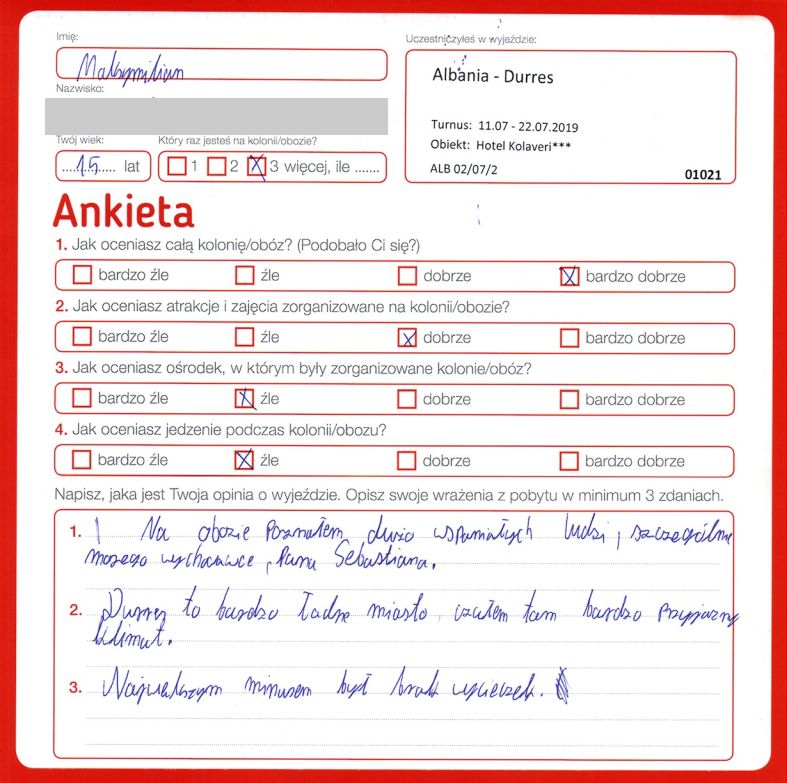 Imię:
Maksymilian
Nazwisko:
Twój wiek:
Który raz jesteś na kolonii/obozie?
.....15..... lat
1 2 3 więcej, ile .......
Uczestniczyłeś w wyjeździe:
Albania - Durres
Turnus: 11.07 - 22.07.2019
Obiekt: Hotel Kolaveri***
ALB 02/07/2
01021
Ankieta
1. Jak oceniasz całą kolonię/obóz? (Podobało Ci się?)
bardzo źle źle dobrze bardzo dobrze
2. Jak oceniasz atrakcje i zajęcia zorganizowane na kolonii/obozie?
bardzo źle źle dobrze bardzo dobrze
3. Jak oceniasz ośrodek, w którym były zorganizowane kolonie/obóz?
bardzo źle źle dobrze bardzo dobrze
4. Jak oceniasz jedzenie podczas kolonii/obozu?
bardzo źle źle dobrze bardzo dobrze
Napisz, jaka jest Twoja opinia o wyjeździe. Opisz swoje wrażenia z pobytu w minimum 3 zdaniach.
1. Na obozie poznałem dużo wspaniałych ludzi, szczególnie
mojego wychowawcę, Pana Sebastiana.
2. Durres to bardzo ładne miasto, czułem tam bardzo przyjazny
klimat.
3. Największym minusem był brak wycieczek.